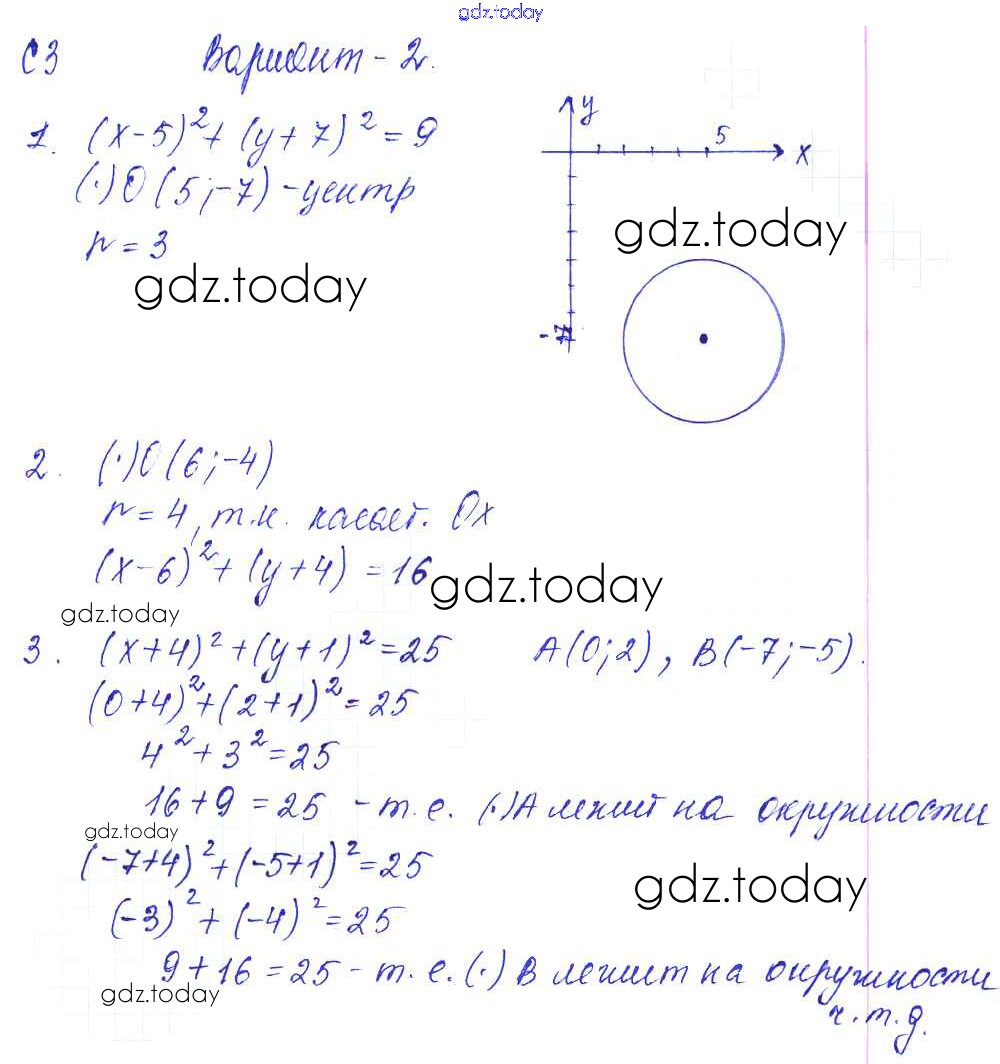 gdz.today
С3 Вариант - 2.
1. (x-5)²+ (y+7)² = 9
y
5
x
(·)O (5;-7) - центр
gdz.today
r = 3
gdz.today
-7
2. (·)O (6;-4)
r = 4, т.к. касает. Ox
(x-6)²+ (y+4) = 16
gdz.today
gdz.today
3. (x+4)²+(y+1)²=25 A(0;2), B(-7;-5).
(0+4)²+(2+1)²=25
4²+3²=25
16+9=25 - т.е. (·)A лежит на окружности
gdz.today
(-7+4)²+(-5+1)²=25
gdz.today
(-3)²+(-4)²=25
9+16=25 - т.е. (·) B лежит на окружности
gdz.today
ч.т.д.